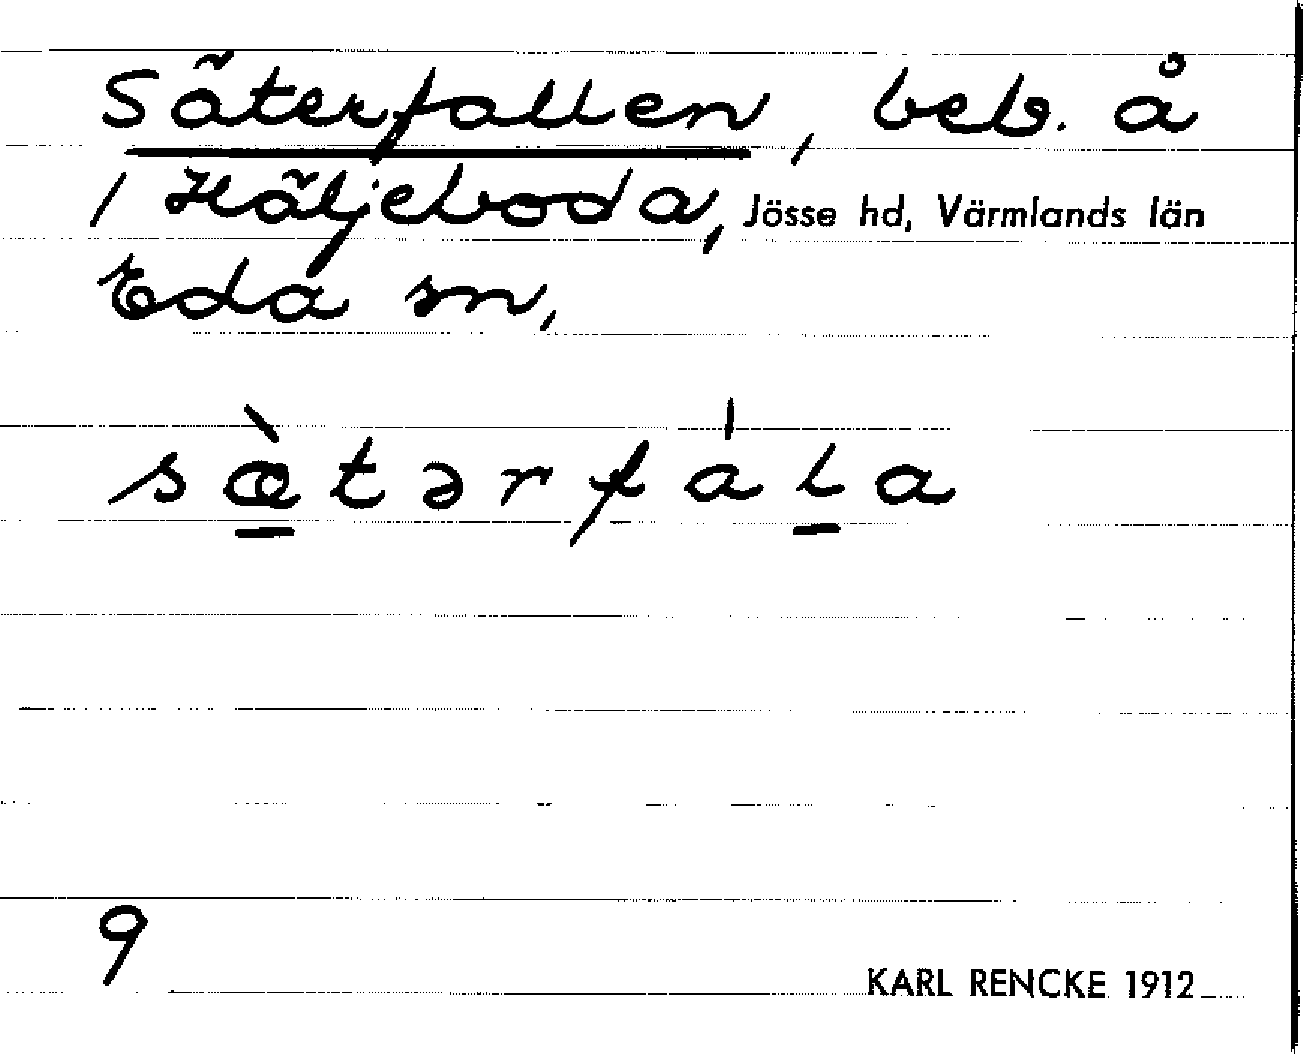 Säterfallen, beb. å
1 Häljeboda, Jösse hd, Värmlands län
Eda sn,
sæ̠̀tərfa̍l̠a
9
KARL RENCKE 1912